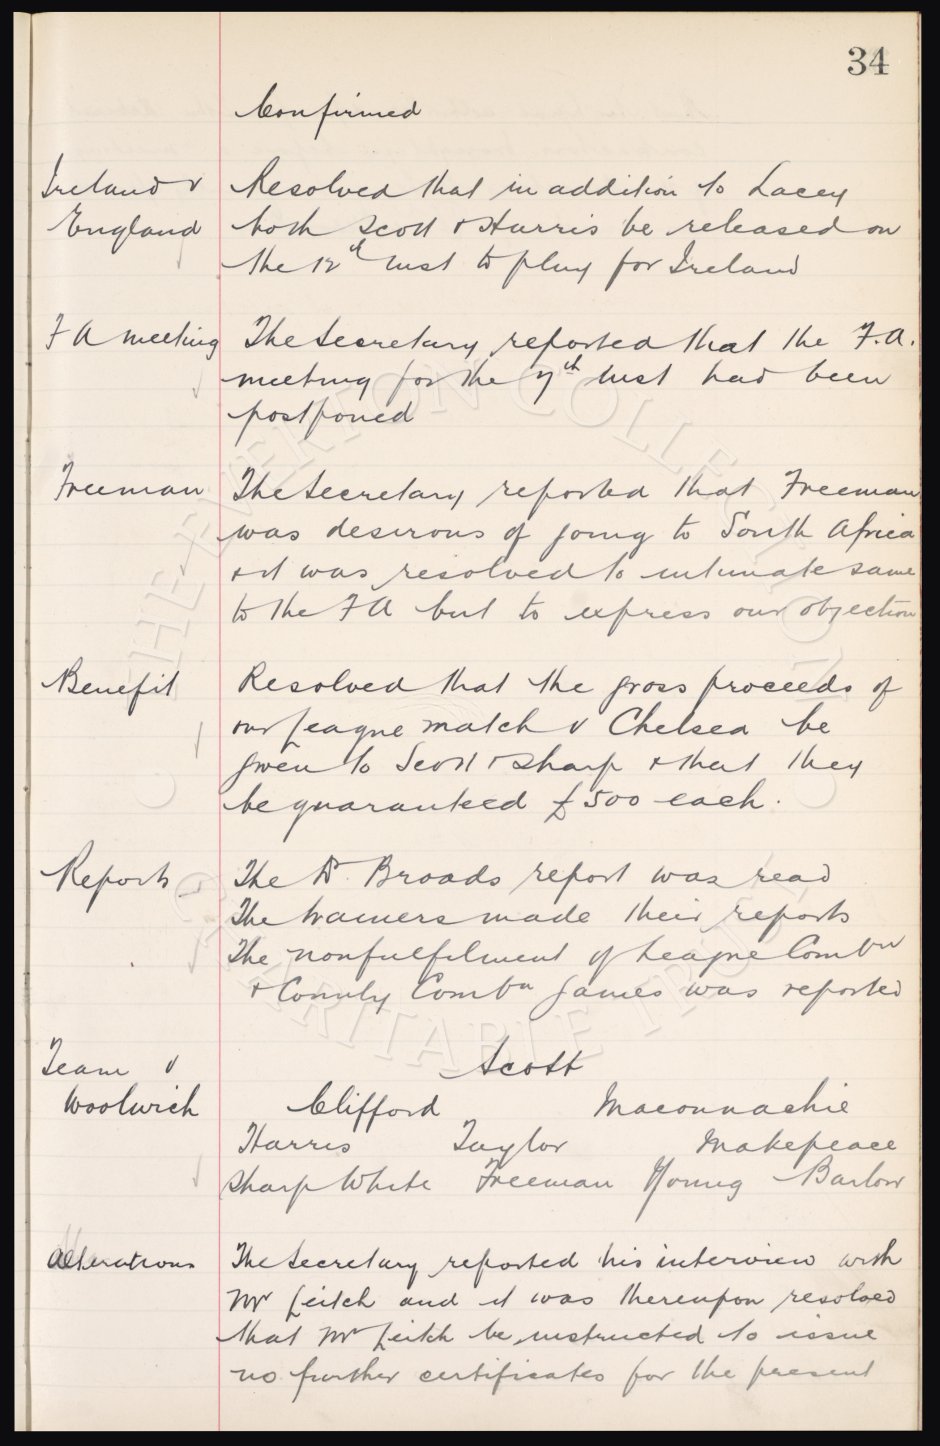 34
Confirmed
Ireland v Resolved that in addition to Lacey
England both Scott & Harris be released on
the 12th Inst to play for Ireland
F A meeting The Secretary reported that the F.A.
meeting for the 7th Inst had been
postponed
Freeman The Secretary reported that Freeman
was desirous of going to South Africa
& it was resolved to intimate same
to the F A but to express our objection
Benefit Resolved that the gross proceeds of
our League match v Chelsea be
given to Scott & Sharp & that they
be guaranteed £500 each.
Reports The Dr. Broads report was read
The trainers made their reports
The nonfulfilment of League Combn
& County Combn games was reported
Team v Scott
Woolwich Clifford Maconnachie
Harris Taylor Makepeace
Sharp White Freeman Young Barlow
Alterations The Secretary reported his interview with
Mr Leitch and it was thereupon resolved
that Mr Leitch be instructed to issue
no further certificates for the present